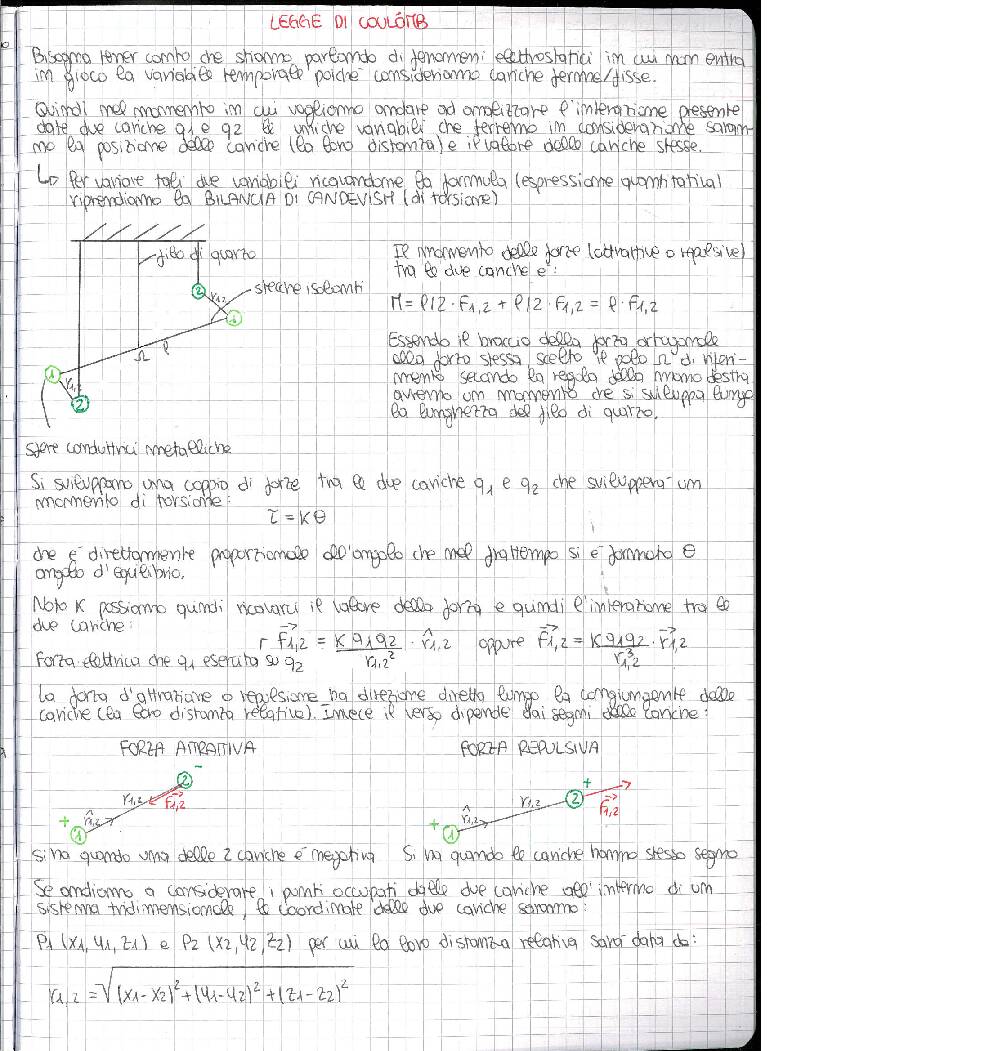 LEGGE DI COULOMB
Bisogna tener conto che stiamo parlando di fenomeni elettrostatici in cui non entra
in gioco la variabile temporale poiché consideriamo cariche ferme/fisse.
Quindi nel momento in cui vogliamo andare ad analizzare l'interazione presente
date due cariche q1 e q2 le uniche variabili che terremo in considerazione saran-
no la posizione delle cariche (la loro distanza) e il valore delle cariche stesse.
↳ Per variare tali due variabili ricavandone la formula (espressione quantitativa)
riprendiamo la BILANCIA DI CANDEVISH (di torsione)
filo di quarzo
stecche isolanti
2
r1,2
1
Ω
l
1
r1,2
2
sfere conduttrici metalliche
Il momento delle forze (attrattive o repulsive)
tra le due cariche è:
M = l/2 · F1,2 + l/2 · F1,2 = l · F1,2
Essendo il braccio della forza ortogonale
alla forza stessa, scelto il polo Ω di riferi-
mento secondo la regola della mano destra
avremo un momento che si sviluppa lungo
la lunghezza del filo di quarzo.
Si sviluppano una coppia di forze tra le due cariche q1 e q2 che svilupperà un
momento di torsione:
τ = Kθ
che è direttamente proporzionale all'angolo che nel frattempo si è formato θ
angolo d'equilibrio.
Noto K possiamo quindi ricavarci il valore della forza e quindi l'interazione tra le
due cariche:
r F⃗1,2 = K q1q2 / r1,2² · r̂1,2 oppure F⃗1,2 = K q1q2 / r³1,2 · r⃗1,2
Forza elettrica che q1 esercita su q2
La forza d'attrazione o repulsione ha direzione diretta lungo la congiungente delle
cariche (la loro distanza relativa). Invece il verso dipende dai segni delle cariche:
FORZA ATTRATTIVA FORZA REPULSIVA
2 -
r1,2
F⃗1,2
r̂1,2
+ 1
+
2
r1,2
F⃗1,2
r̂1,2
+ 1
Si ha quando una delle 2 cariche è negativa Si ha quando le cariche hanno stesso segno
Se andiamo a considerare i punti occupati dalle due cariche all'interno di un
sistema tridimensionale, le coordinate delle due cariche saranno:
P1 (x1, y1, z1) e P2 (x2, y2, z2) per cui la loro distanza relativa sarà data da:
r1,2 = √(x1-x2)² + (y1-y2)² + (z1-z2)²